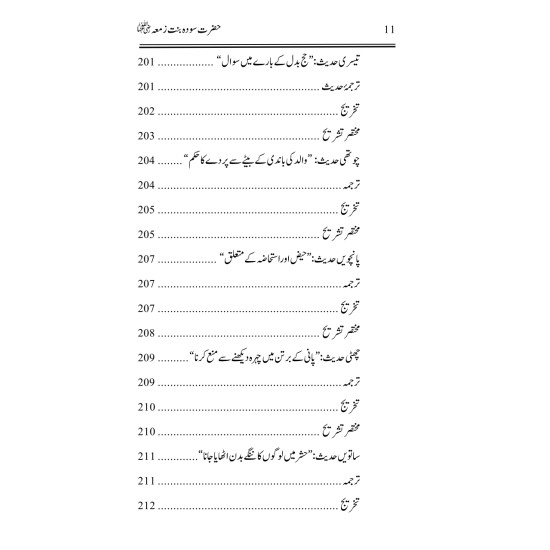 11 حضرت سودہ بنت زمعہ رضی اللہ عنہا
تیسری حدیث:”حج بدل کے بارے میں سوال“ .................. 201
ترجمۂ حدیث .................................................... 201
تخریج .......................................................... 202
مختصر تشریح .................................................... 203
چوتھی حدیث: ”والد کی باندی کے بیٹے سے پردے کا حکم“ ........ 204
ترجمہ .......................................................... 204
تخریج .......................................................... 205
مختصر تشریح .................................................... 205
پانچویں حدیث:”حیض اور استحاضہ کے متعلق“ ................... 207
ترجمہ .......................................................... 207
تخریج .......................................................... 207
مختصر تشریح .................................................... 208
چھٹی حدیث:”پانی کے برتن میں چہرہ دیکھنے سے منع کرنا“ .......... 209
ترجمہ .......................................................... 209
تخریج .......................................................... 210
مختصر تشریح .................................................... 210
ساتویں حدیث:”حشر میں لوگوں کا ننگے بدن اٹھایا جانا“ ............. 211
ترجمہ .......................................................... 211
تخریج .......................................................... 212